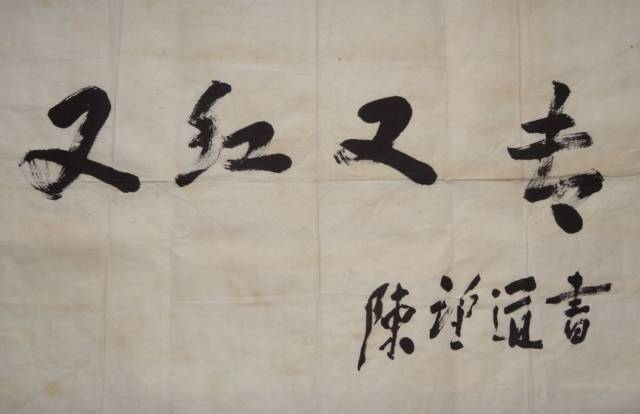 又红又专
陳望道書